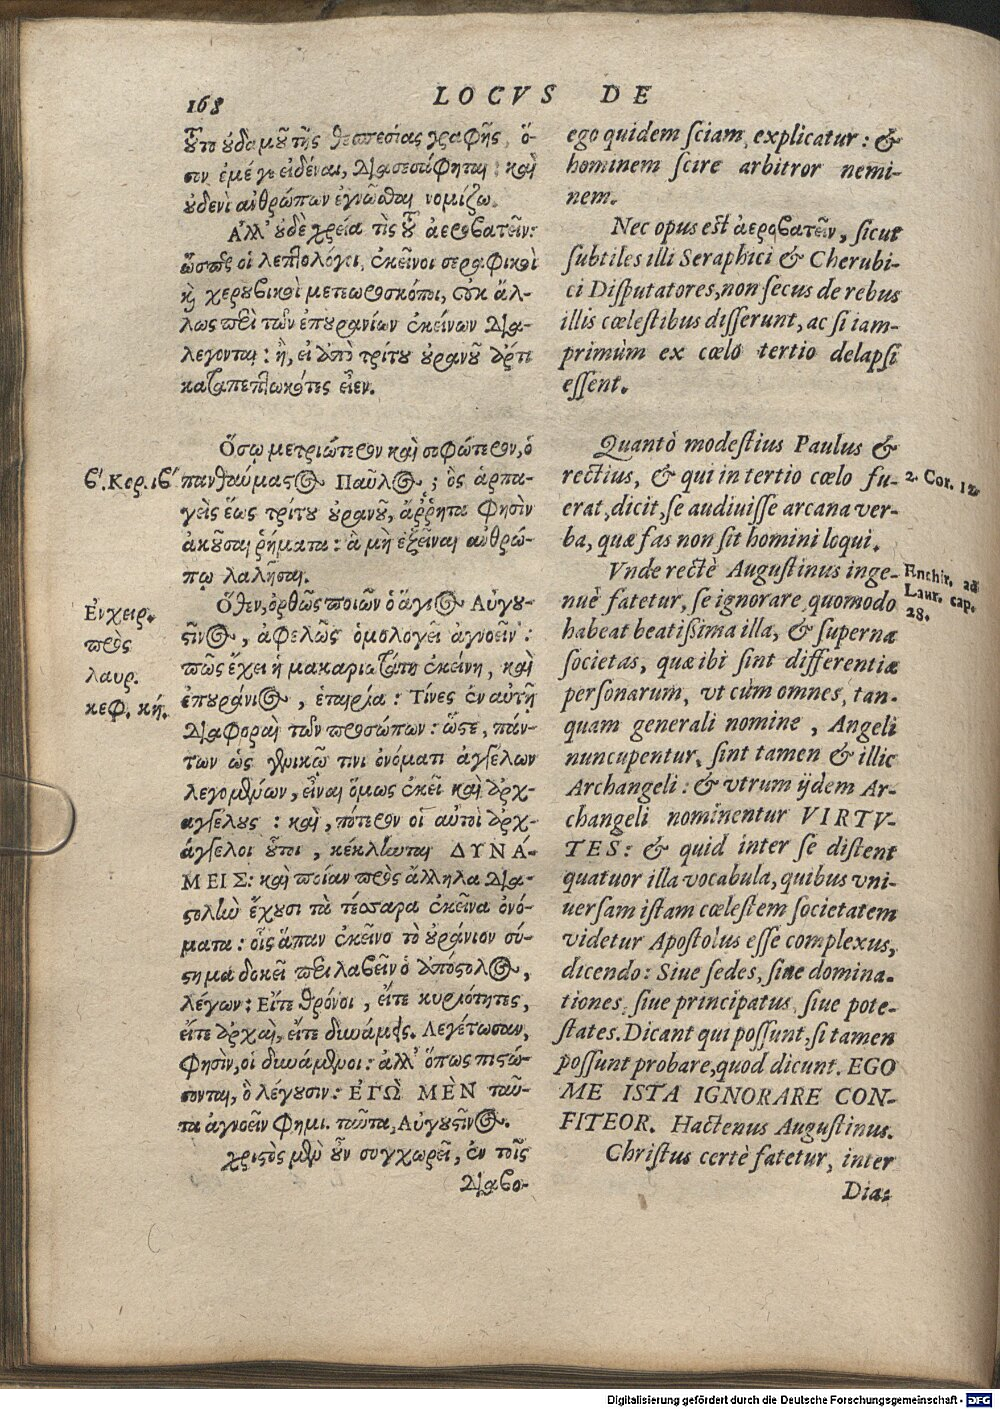 168
LOCVS DE
τοῦτο οὐδαμοῦ τῆς θεσπεσίας γραφῆς, ὅ-
σιν ἐμέ γε εἰδέναι, διασεσάφηται: καὶ
οὐδενὶ ἀνθρώπων ἐγνῶσθαι νομίζω.
Ἀλλ' οὐδὲ χρεία τὶς τοῦ ἀεροβατεῖν:
ὥσπερ οἱ λεπτολόγοι, ἐκεῖνοι σεραφικοὶ
καὶ χερουβικοὶ μετεωροσκόποι, οὐκ ἄλ-
λως περὶ τῶν ἐπουρανίων ἐκείνων δια-
λέγονται: ἢ, εἰ ἀπὸ τρίτου οὐρανοῦ ἄρτι
καταπεπτωκότες εἶεν.
Ὅσῳ μετριώτερον καὶ σοφώτερον, ὁ
β'. Κορ. ιβ'
πανθαύμαστος Παῦλος; ὃς ἁρπα-
γεὶς ἕως τρίτου οὐρανοῦ, ἄῤῥητα φησὶν
ἀκοῦσαι ῥήματα: ἃ μὴ ἐξεῖναι ἀνθρώ-
πῳ λαλῆσαι.
Ὅθεν, ὀρθῶς ποιῶν ὁ ἅγιος Αὐγου-
Ἐνχειρ.
πρὸς
λαυρ.
κεφ. κή.
στῖνος, ἀφελῶς ὁμολογεῖ ἀγνοεῖν:
πῶς ἔχει ἡ μακαριωτάτη ἐκείνη, καὶ
ἐπουράνιος, ἑταιρία: Τίνες ἐν αὐτῇ
διαφοραὶ τῶν προσώπων: ὥστε, πάν-
των ὡς γενικῷ τινι ὀνόματι ἀγγέλων
λεγομένων, εἶναι ὅμως ἐκεῖ καὶ ἀρχ-
αγγέλους: καὶ, πότερον οἱ αὐτοὶ ἀρχ-
άγγελοι οὗτοι, κέκληνται ΔΥΝΆ-
ΜΕΙΣ: καὶ ποίαν πρὸς ἄλληλα δια-
στολὴν ἔχουσι τὰ τέσσαρα ἐκεῖνα ὀνό-
ματα: οἷς ἅπαν ἐκεῖνο τὸ οὐράνιον σύ-
στημα δοκεῖ περιλαβεῖν ὁ ἀπόστολος,
λέγων: Εἴτε θρόνοι, εἴτε κυριότητες,
εἴτε ἀρχαὶ, εἴτε δυνάμεις. Λεγέτωσαν,
φησὶν, οἱ δυνάμενοι: ἀλλ' ὅπως πιστώ-
σονται, ὃ λέγουσιν: ἘΓῺ ΜῈΝ ταῦ-
τα ἀγνοεῖν φημι. ταῦτα, Αὐγουστῖνος.
χριστὸς μὲν οὖν συγχωρεῖ, ἐν τοῖς
Διαβο-
ego quidem sciam, explicatur: &
hominem scire arbitror nemi-
nem.
Nec opus est ἀεροβατεῖν, sicut
subtiles illi Seraphici & Cherubi-
ci Disputatores, non secus de rebus
illis cœlestibus disserunt, ac si iam-
primùm ex cœlo tertio delapsi
essent.
Quantò modestius Paulus &
rectius, & qui in tertio cœlo fu-
2. Cor. 12.
erat, dicit, se audiuisse arcana ver-
ba, quæ fas non sit homini loqui.
Vnde rectè Augustinus inge-
Enchir. ad
Laur. cap.
28.
nuè fatetur, se ignorare, quomodo
habeat beatissima illa, & superna
societas, quæ ibi sint differentiæ
personarum, vt cùm omnes, tan-
quam generali nomine, Angeli
nuncupentur, sint tamen & illic
Archangeli: & vtrum ijdem Ar-
changeli nominentur VIRTV-
TES: & quid inter se distent
quatuor illa vocabula, quibus vni-
uersam istam cœlestem societatem
videtur Apostolus esse complexus,
dicendo: Siue sedes, siue domina-
tiones, siue principatus, siue pote-
states. Dicant qui possunt, si tamen
possunt probare, quod dicunt. EGO
ME ISTA IGNORARE CON-
FITEOR. Hactenus Augustinus.
Christus certè fatetur, inter
Dia-
Digitalisierung gefördert durch die Deutsche Forschungsgemeinschaft - DFG